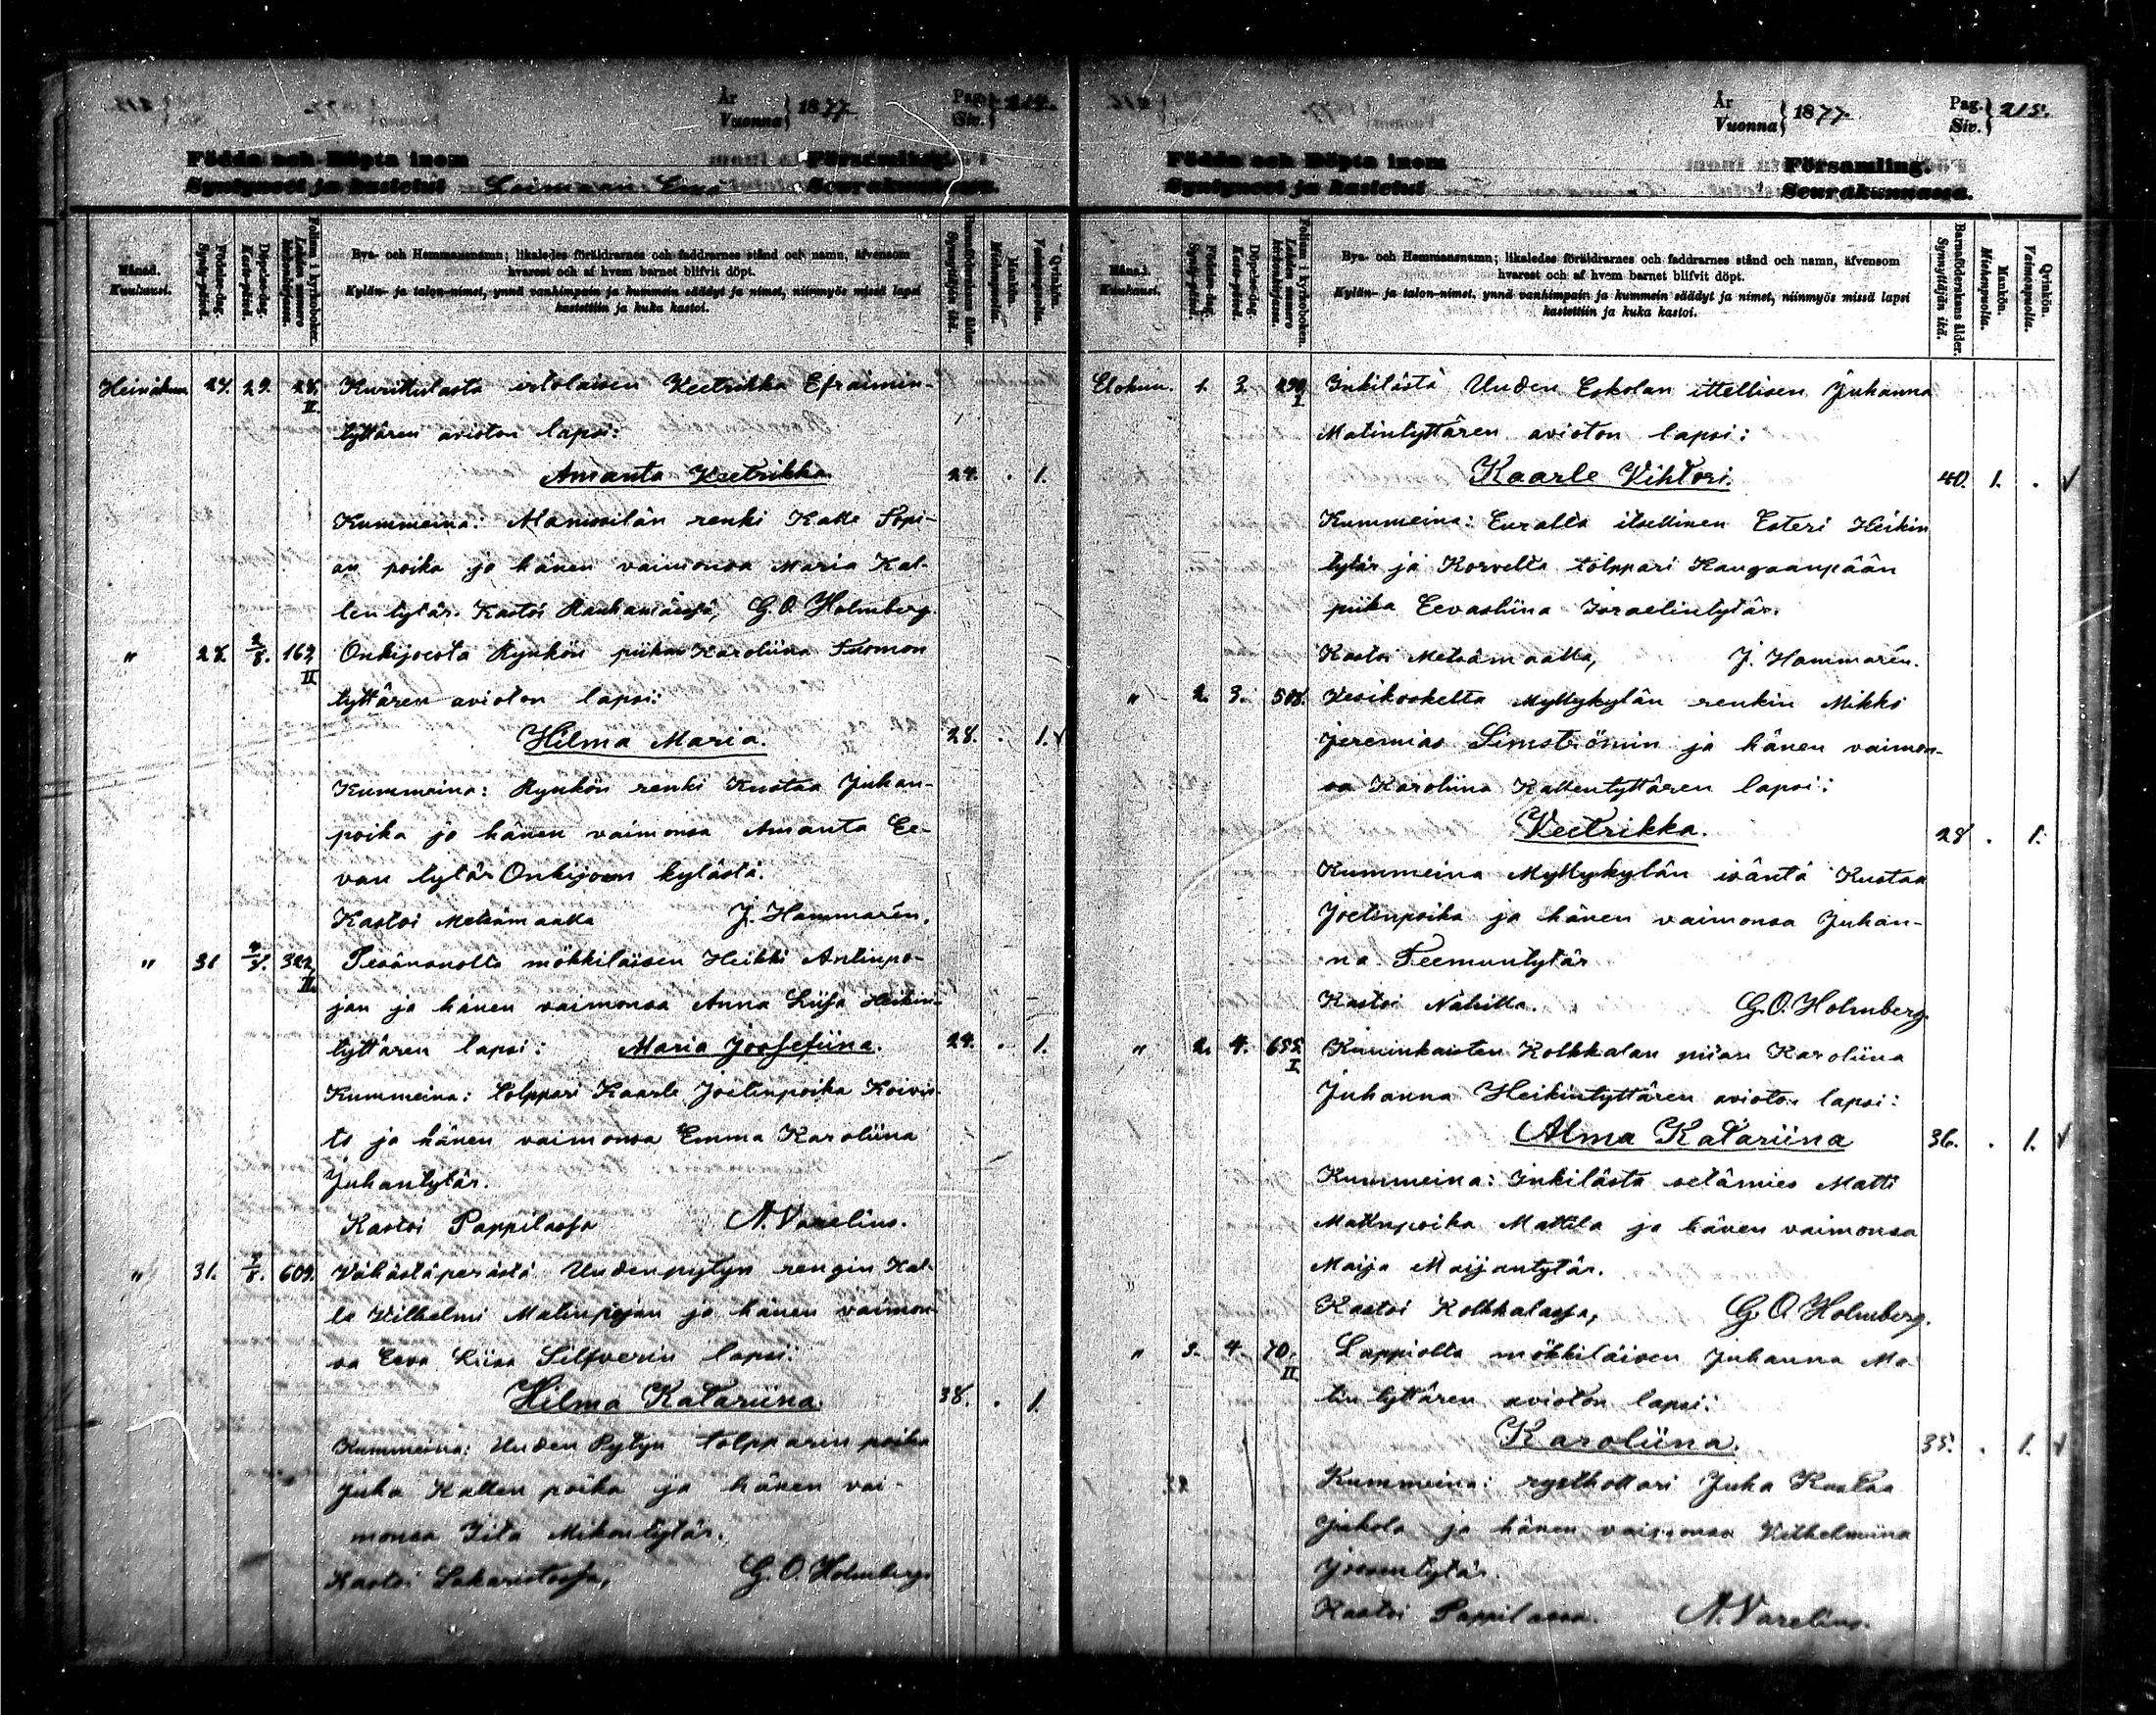 År
Vuonna } 1877.
Pag.
Siv. } 214.
Födda och Döpta inom Församling.
Syntyneet ja kastetut Loimaan Emä Seurakunnassa.
Månad.
Kuukausi.
Födelse-dag.
Synty-päivä.
Döpelse-dag.
Kaste-päivä.
Folium i kyrkoboken.
Lehden numero kirkonkirjassa.
Bya- och Hemmansnamn; likaledes föräldrarnes och faddrarnes stånd och namn, äfvensom
hvarest och af hvem barnet blifvit döpt.
Kylän- ja talon-nimet, ynnä vanhimpain ja kummein säädyt ja nimet, niinmyös missä lapsi
kastettiin ja kuka kastoi.
Barnaföderskans ålder.
Synnyttäjän ikä.
Mankön.
Miehenpuolta.
Qvinkön.
Vaimonpuolta.
Heinäkuu 29. Kurittulasta Veetrikka Efraimin-
tyttären avioton lapsi:
Amanta Veetrikka. 24. . 1.
Kummeina: renki Kalle Sopi-
an poika ja hänen vaimonsa Maria Kal-
len tytär. Kastoi G. O. Holmberg.
" 28. 2/8. 163, II Onkijoesta Rynkön piikan Karoliina Tuomon
tyttären avioton lapsi:
Hilma Maria. 28. . 1. ✓
Kummeina: Rynkön renki Kustaa Juhan-
poika ja hänen vaimonsa Amanta Ee-
van tytär Onkijoen kylästä.
Kastoi Metsämaalla J. Hammarén.
" 31 322, II. mökkiläisen Heikki Antinpo-
jan ja hänen vaimonsa Anna Liisa Heikin-
tyttären lapsi: Maria Joosefiina. 29. . 1.
Kummeina: tolppari Kaarle Joelinpoika Koivis-
to ja hänen vaimonsa Emma Karoliina
Juhantytär.
Kastoi Pappilassa A. Varelius.
" 31. 609. Vähästäperästä Uudenpytyn rengin Kal-
le Vilhelmi Matinpojan ja hänen vaimon-
sa Eeva Liisa Silfverin lapsi:
Hilma Katariina. 38. . 1.
Kummeina: Uuden Pytyn tolpparin poika
Juha Kallen poika ja hänen vai-
monsa Iita Mikontytär.
Kastoi G. O. Holmberg.
År
Vuonna } 1877.
Pag.
Siv. } 215.
Födda och Döpta inom Församling.
Syntyneet ja kastetut Seurakunnassa.
Månad.
Kuukausi.
Födelse-dag.
Synty-päivä.
Döpelse-dag.
Kaste-päivä.
Folium i kyrkoboken.
Lehden numero kirkonkirjassa.
Bya- och Hemmansnamn; likaledes föräldrarnes och faddrarnes stånd och namn, äfvensom
hvarest och af hvem barnet blifvit döpt.
Kylän- ja talon-nimet, ynnä vanhimpain ja kummein säädyt ja nimet, niinmyös missä lapsi
kastettiin ja kuka kastoi.
Barnaföderskans ålder.
Synnyttäjän ikä.
Mankön.
Miehenpuolta.
Qvinkön.
Vaimonpuolta.
Elokuu. 1. 3. Inkilästä Uuden Eskolan ittellisen Juhanna
Matintyttären avioton lapsi:
Kaarle Vihtori. 40. 1. . ✓
Kummeina: Euralla itsellinen Esteri Heikin
tytär ja Korvelta tolppari Kangaanpään
piika Eevastiina Israelintytär.
Kastoi Metsämaalla, J. Hammarén.
" 2. 3. 508. Vesikoskelta Myllykylän renkin Mikki
Jeremias Simströmin ja hänen vaimon-
sa Karoliina Kallentyttären lapsi:
Veetrikka. 28 . 1.
Kummeina Myllykylän isäntä Kustaa
Joelinpoika ja hänen vaimonsa Juhan-
na Teemuntytär
Kastoi G. O. Holmberg.
" 2. 4. I Kolkkalan piian Karoliina
Juhanna Heikintyttären avioton lapsi:
Alma Katariina 36. . 1. ✓
Kummeina: Inkilästä Matti
Matinpoika Mattila ja hänen vaimonsa
Maija Maijantytär.
Kastoi Kolkkalassa, G. O. Holmberg.
" 3. 4. 70, II mökkiläisen Juhanna Ma-
tin tyttären avioton lapsi:
Karoliina. 35. . 1. ✓
Kummeina: Juha Kustaa
Jokola ja hänen vaimonsa Vilhelmiina
Kastoi Pappilassa. A. Varelius.